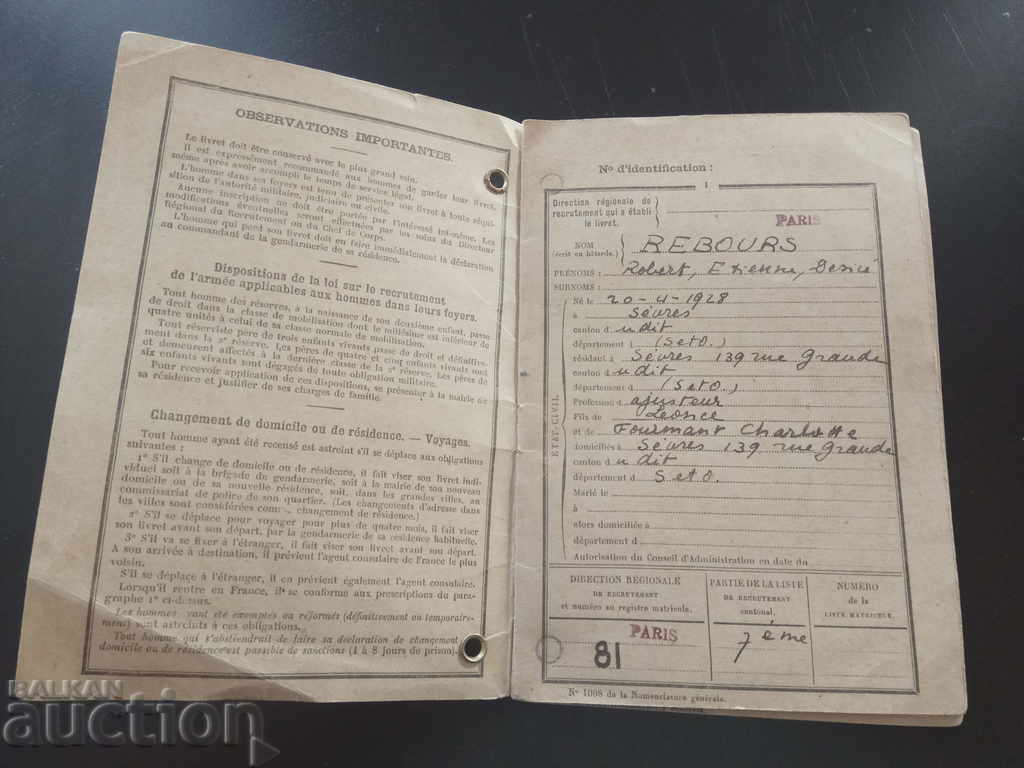 OBSERVATIONS IMPORTANTES.
Le livret doit être conservé avec le plus grand soin.
Il est expressément recommandé aux hommes de garder leur livret,
même après avoir accompli le temps de service légal.
L'homme dans ses foyers est tenu de présenter son livret à toute réqui-
sition de l'autorité militaire, judiciaire ou civile.
Aucune inscription ne doit être portée par l'intéressé lui-même. Les
modifications éventuelles seront effectuées par les soins du Directeur
Régional du Recrutement ou du Chef de Corps.
L'homme qui perd son livret doit en faire immédiatement la déclaration
au commandant de la gendarmerie de sa résidence.
Dispositions de la loi sur le recrutement
de l'armée applicables aux hommes dans leurs foyers.
Tout homme des réserves, à la naissance de son deuxième enfant, passe
de droit dans la classe de mobilisation dont le millésime est inférieur de
quatre unités à celui de sa classe normale de mobilisation.
Tout réserviste père de trois enfants vivants passe de droit et définitive-
ment dans la 2e réserve. Les pères de quatre et cinq enfants vivants sont
et demeurent affectés à la dernière classe de la 2e réserve. Les pères de
six enfants vivants sont dégagés de toute obligation militaire.
Pour recevoir application de ces dispositions, se présenter à la mairie de
sa résidence et justifier de ses charges de famille.
Changement de domicile ou de résidence. — Voyages.
Tout homme ayant été recensé est astreint s'il se déplace aux obligations
suivantes :
1° S'il change de domicile ou de résidence, il fait viser son livret indi-
viduel soit à la brigade de gendarmerie, soit à la mairie de son nouveau
domicile ou de sa nouvelle résidence, soit, dans les grandes villes, au
commissariat de police de son quartier. (Les changements d'adresse dans
les villes sont considérés com changement de résidence.)
2° S'il se déplace pour voyager pour plus de quatre mois, il fait viser
son livret avant son départ, par la gendarmerie de sa résidence habituelle.
3° S'il va se fixer à l'étranger, il fait viser son livret avant son départ.
A son arrivée à destination, il prévient l'agent consulaire de France le plus
voisin.
S'il se déplace à l'étranger, il en prévient également l'agent consulaire.
Lorsqu'il rentre en France, il se conforme aux prescriptions du para-
graphe 1° ci-dessus.
Les hommes yant été exemptés ou réformés (définitivement ou temporaire-
ment) sont astreints à ces obligations.
Tout homme qui s'abstiendrait de faire sa déclaration de changement
domicile ou de résidence est passible de sanctions (1 à 8 jours de prison).
No d'identification :
1
Direction régionale de
recrutement qui a établi
le livret.
PARIS
NOM
(écrit en bâtarde.)
REBOURS
PRÉNOMS : Robert, Etienne, Desiré
SURNOMS :
ÉTAT-CIVIL
Né le 20-4-1928
à Sèvres
canton d udit
département d (SetO.)
résidant à Sèvres 139 rue Grande
canton d udit
département d (SetO.)
Profession d ajusteur
Fils de Leonce
et de Fourmant Charlotte
domiciliés à Sèvres 139 rue Grande
canton d udit
département d SetO.
Marié le
à
alors domiciliée à
département d
Autorisation du Conseil d'Administration en date du
DIRECTION RÉGIONALE
DE RECRUTEMENT
et numéro au registre matricule.
PARIS
81
PARTIE DE LA LISTE
DE RECRUTEMENT
cantonal.
7ème
NUMÉRO
de la
LISTE MATRICULE.
No 1008 de la Nomenclature générale.
BALKAN
auction